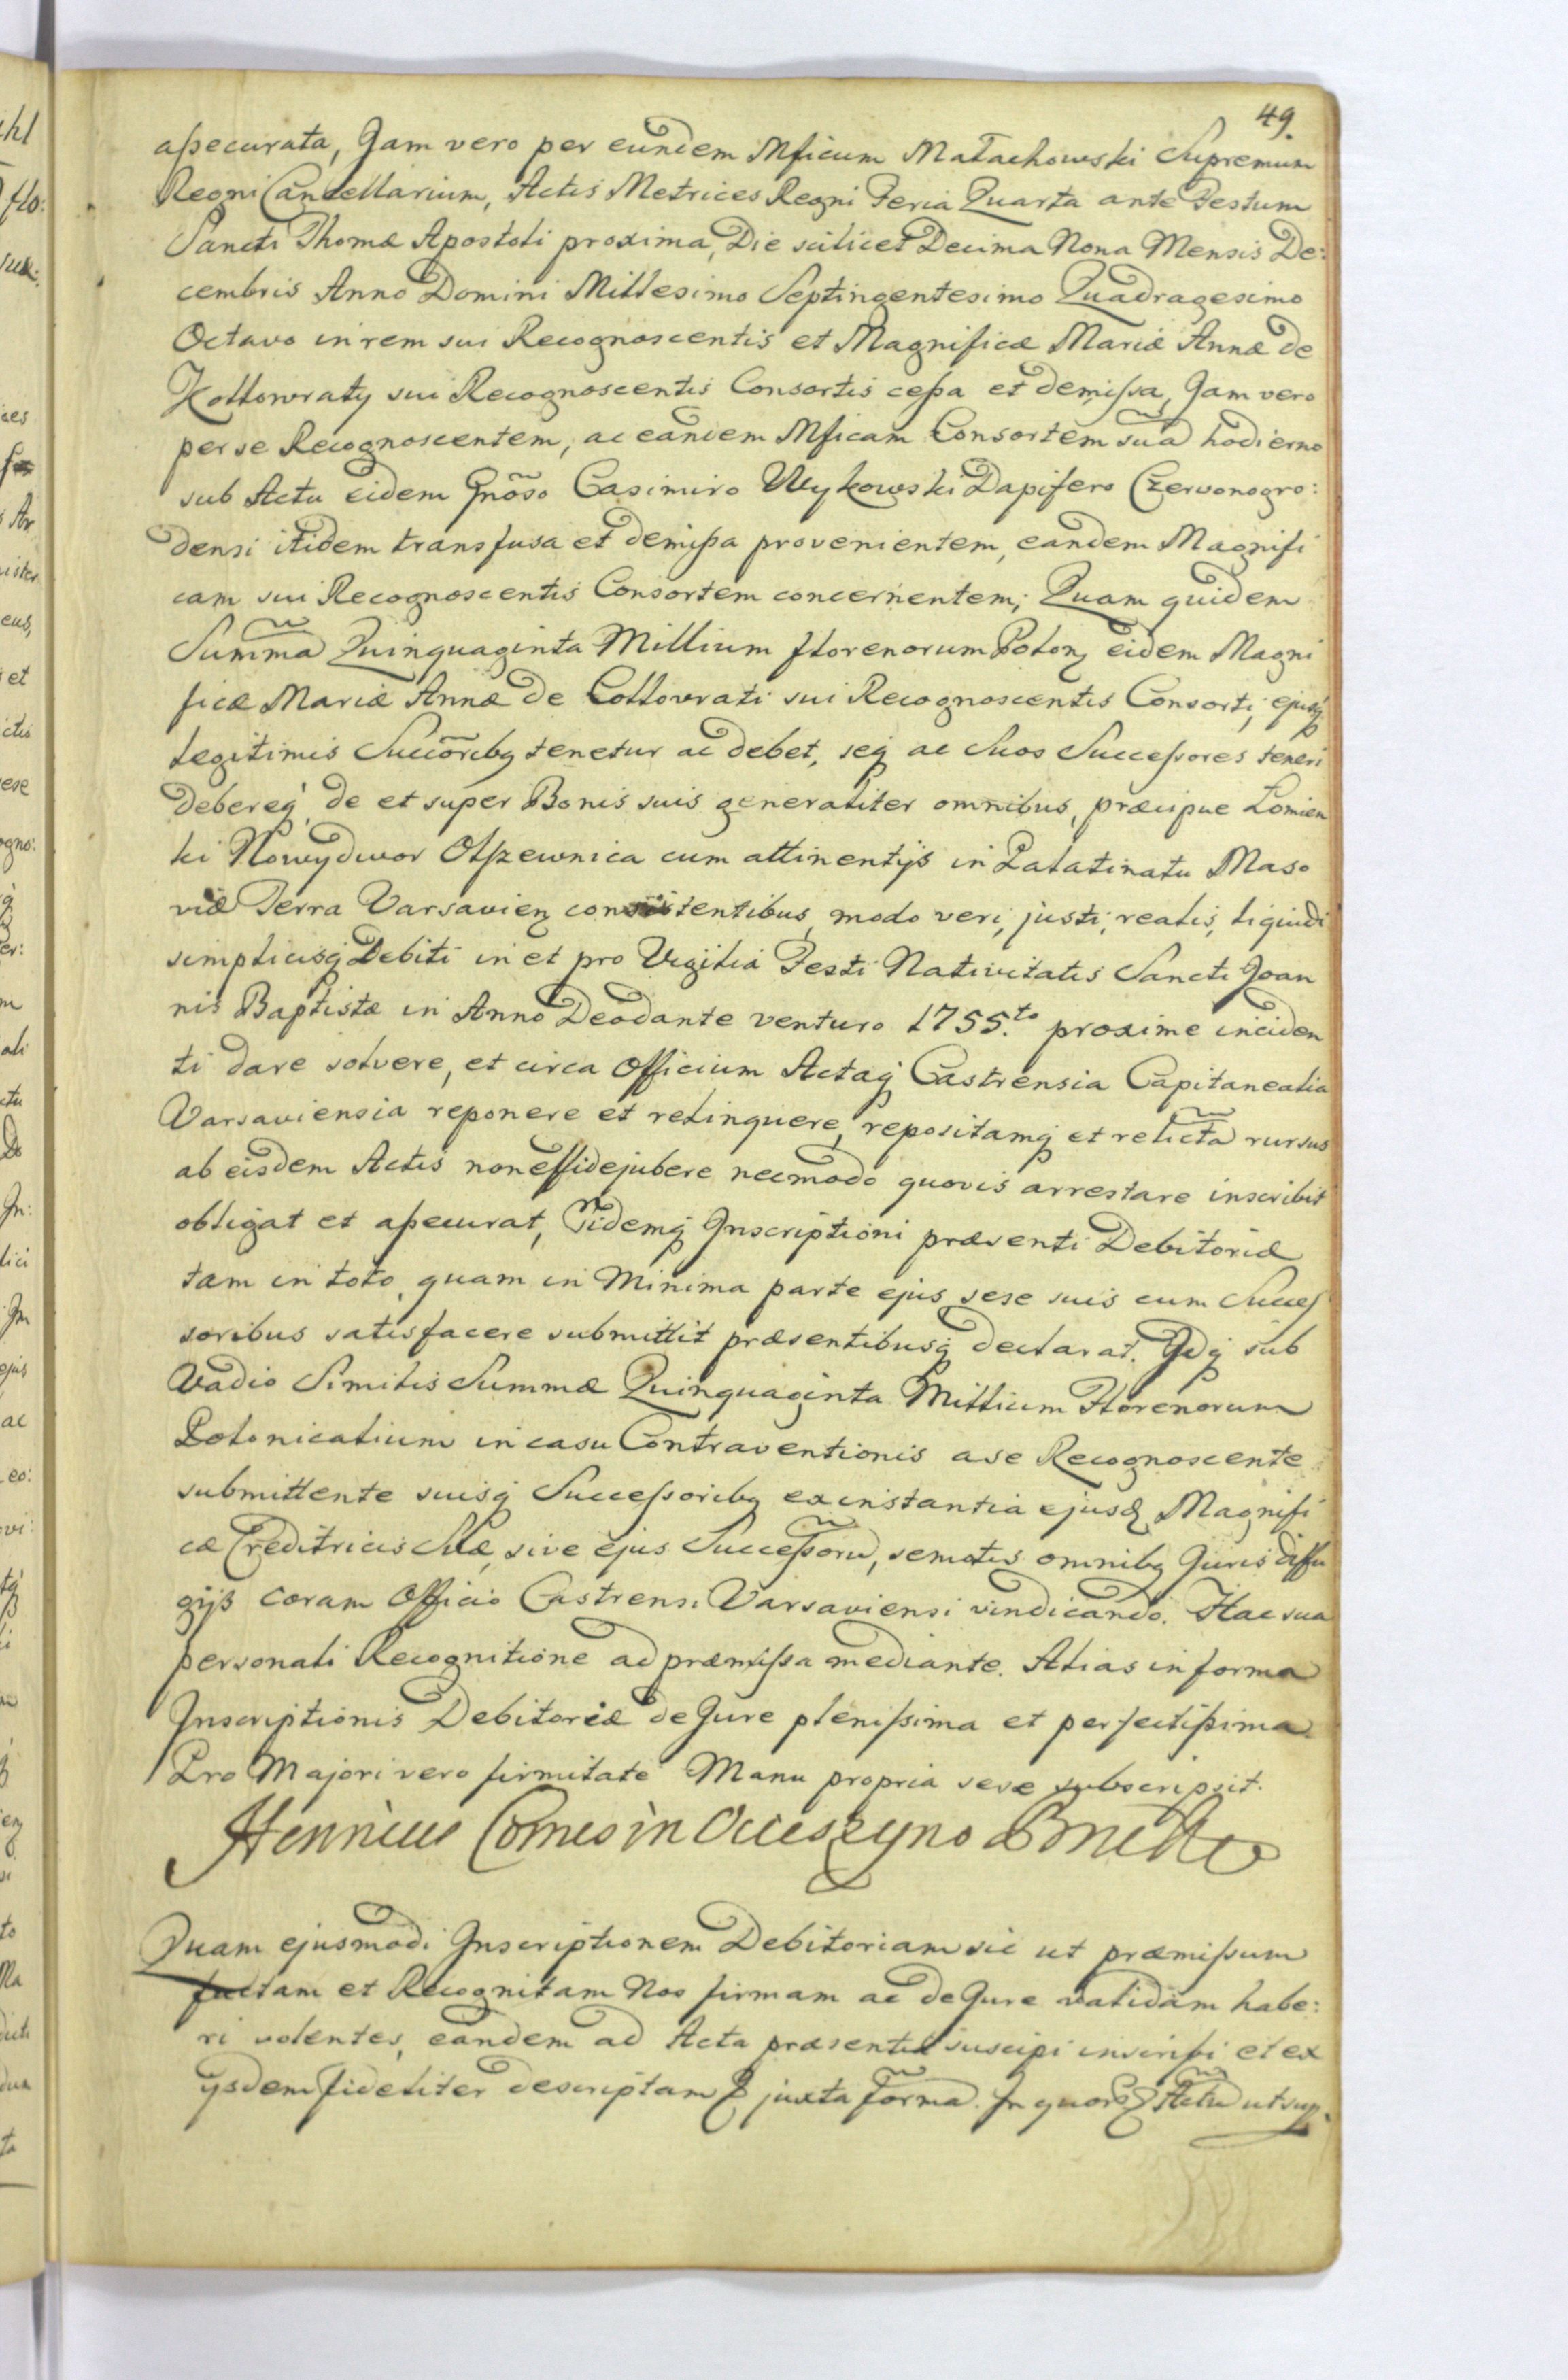 49.
aßecurata, Jam vero per eundem Mficum Małachowski Supremum
Regni Cancellarium, Actis Metrices Regni Feria Quarta ante Festum
Sancti Thomæ Apostoli proxima, Die scilicet Decima Nona Mensis De:
cembris Anno Domini Millesimo Septingentesimo Quadragesimo
Octavo in rem sui Recognoscentis et Magnificæ Mariæ Annæ de
Kollowraty sui Recognoscentis Consortis ceßa et demißa, Jam vero
per se Recognoscentem, ac eandem Mficam Consortem suã hodierno
sub Actu eidem Gnõso Casimiro Wykowski Dapifero Czervonogro:
densi itidem transfusa et demißa provenientem, eandem Magnifi
cam sui Recognoscentis Consortem concernentem; Quam quidem
Summã Quinquaginta Millium florenorum Polonꝫ eidem Magni
ficæ Mariæ Annæ de Collowrati sui Recognoscentis Consorti, ejusq̃
legitimis Succõribꝫ tenetur ac debet, seqꝫ ac Suos Succeßores teneri
debereq̃ de et super Bonis suis generaliter omnibus, præcipue Łomien
ki Nowydwor Olszewnica cum attinentijs in Palatinatu Maso
viæ Terra Varsavienꝫ consistentibus, modo veri, justi, realis, liquidi
simplicisq̃ Debiti in et pro Vigilia Festi Nativitatis Sancti Joan
nis Baptistæ in Anno Deodante venturo 1755.to proxime inciden
ti dare solvere, et circa Officium Actaq̃ Castrensia Capitanealia
Varsaviensia reponere et relinquere, repositamq̃ et relictã rursus
ab eisdem Actis non effidejubere necmodo quovis arrestare inscribit
obligat et aßecurat, Eidemq̃ Inscriptioni præsenti Debitoriæ
tam in toto, quam in Minima parte ejus sese suis cum Succeſ
soribus satisfacere submittit præsentibusq̃ declarat. Idq̃ sub
Vadio Similis Summæ Quinquaginta Millium Florenorum
Polonicalium in casu Contraventionis a se Recognoscente
submittente suisq̃ Succeßoribꝫ ex instantia ejusdꝫ Magnifi
cæ Creditricis Suæ, sive ejus Succeßorũ, semotis omnibꝫ Juris diffu
gijs coram Officio Castrensi Varsaviensi vindicando. Hac sua
personali Recognitione ad præmißa mediante. Alias in forma
Inscriptionis Debitoriæ de Jure plenißima et perfectißima.
Pro Majori vero firmitate Manu propria sese subscripsit.
Henricus Comes in
Quam ejusmodi Inscriptionem Debitoriam sic ut præmißum
factam et Recognitam Nos firmam ac de Jure validam habe:
ri volentes, eandem ad Acta præsentia suscipi inscribi et ex
ijsdem fideliter descriptam juxta formã. In quorꝫ Actũ ut sup.